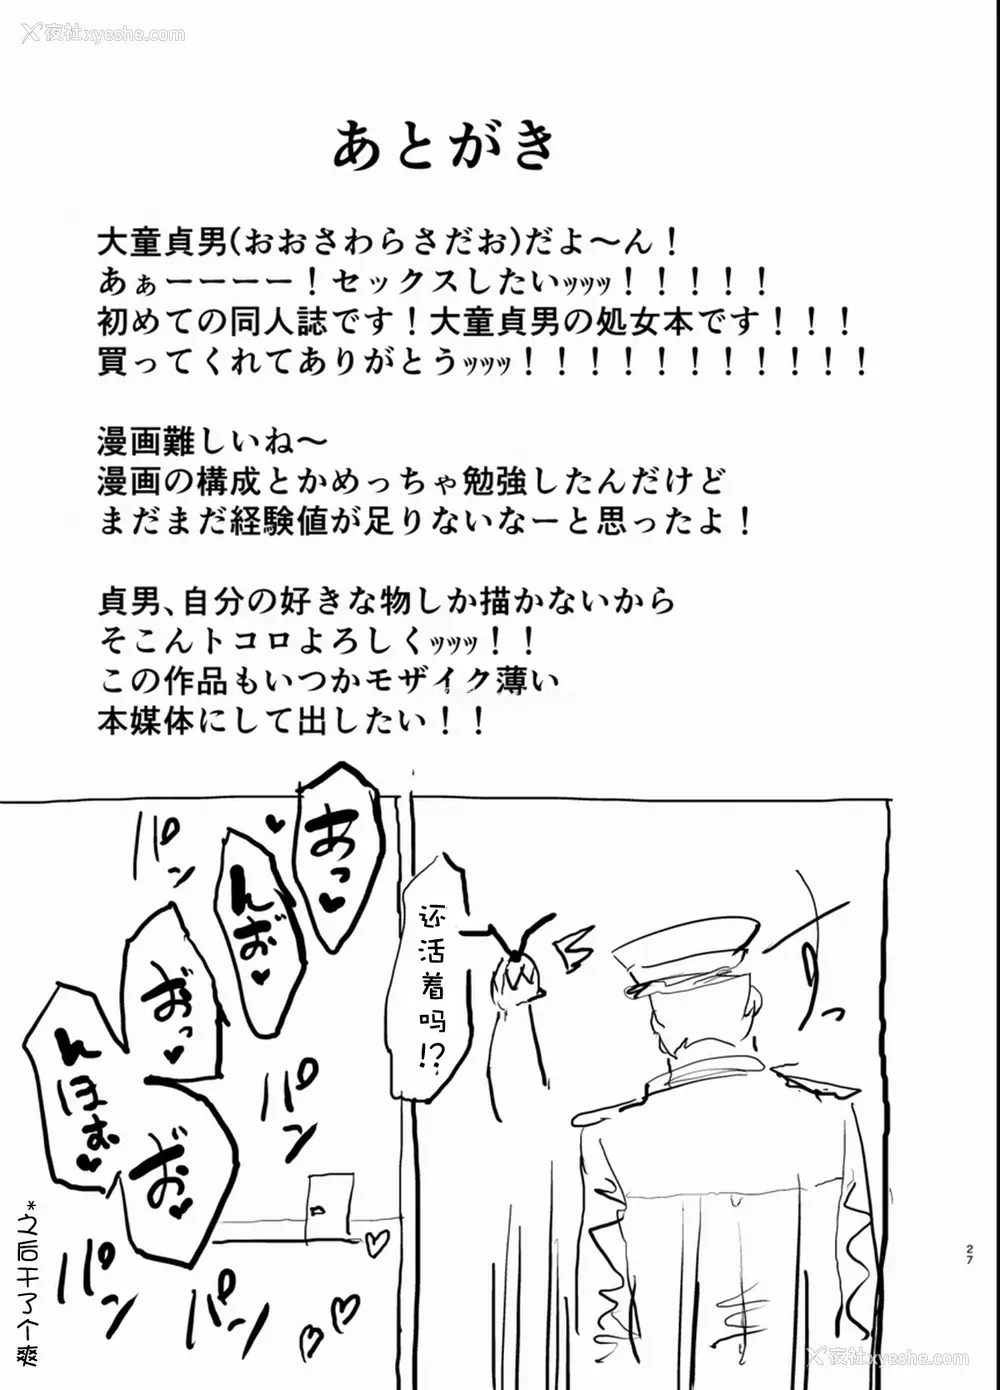 夜社xyeshe.com
あとがき
大童貞男(おおさわらさだお)だよ〜ん！
あぁーーーー！セックスしたいｯｯｯ！！！！！
初めての同人誌です！大童貞男の処女本です！！！
買ってくれてありがとうｯｯｯ！！！！！！！！！！！
漫画難しいね〜
漫画の構成とかめっちゃ勉強したんだけど
まだまだ経験値が足りないなーと思ったよ！
貞男、自分の好きな物しか描かないから
そこんトコロよろしくｯｯｯ！！
この作品もいつかモザイク薄い
本媒体にして出したい！！
还活着吗!?
あっ♥
んお♥
おっ♥
んほぉ♥
お♥
パン
パン
パン
パン
*之后干了个爽
27
夜社xyeshe.com